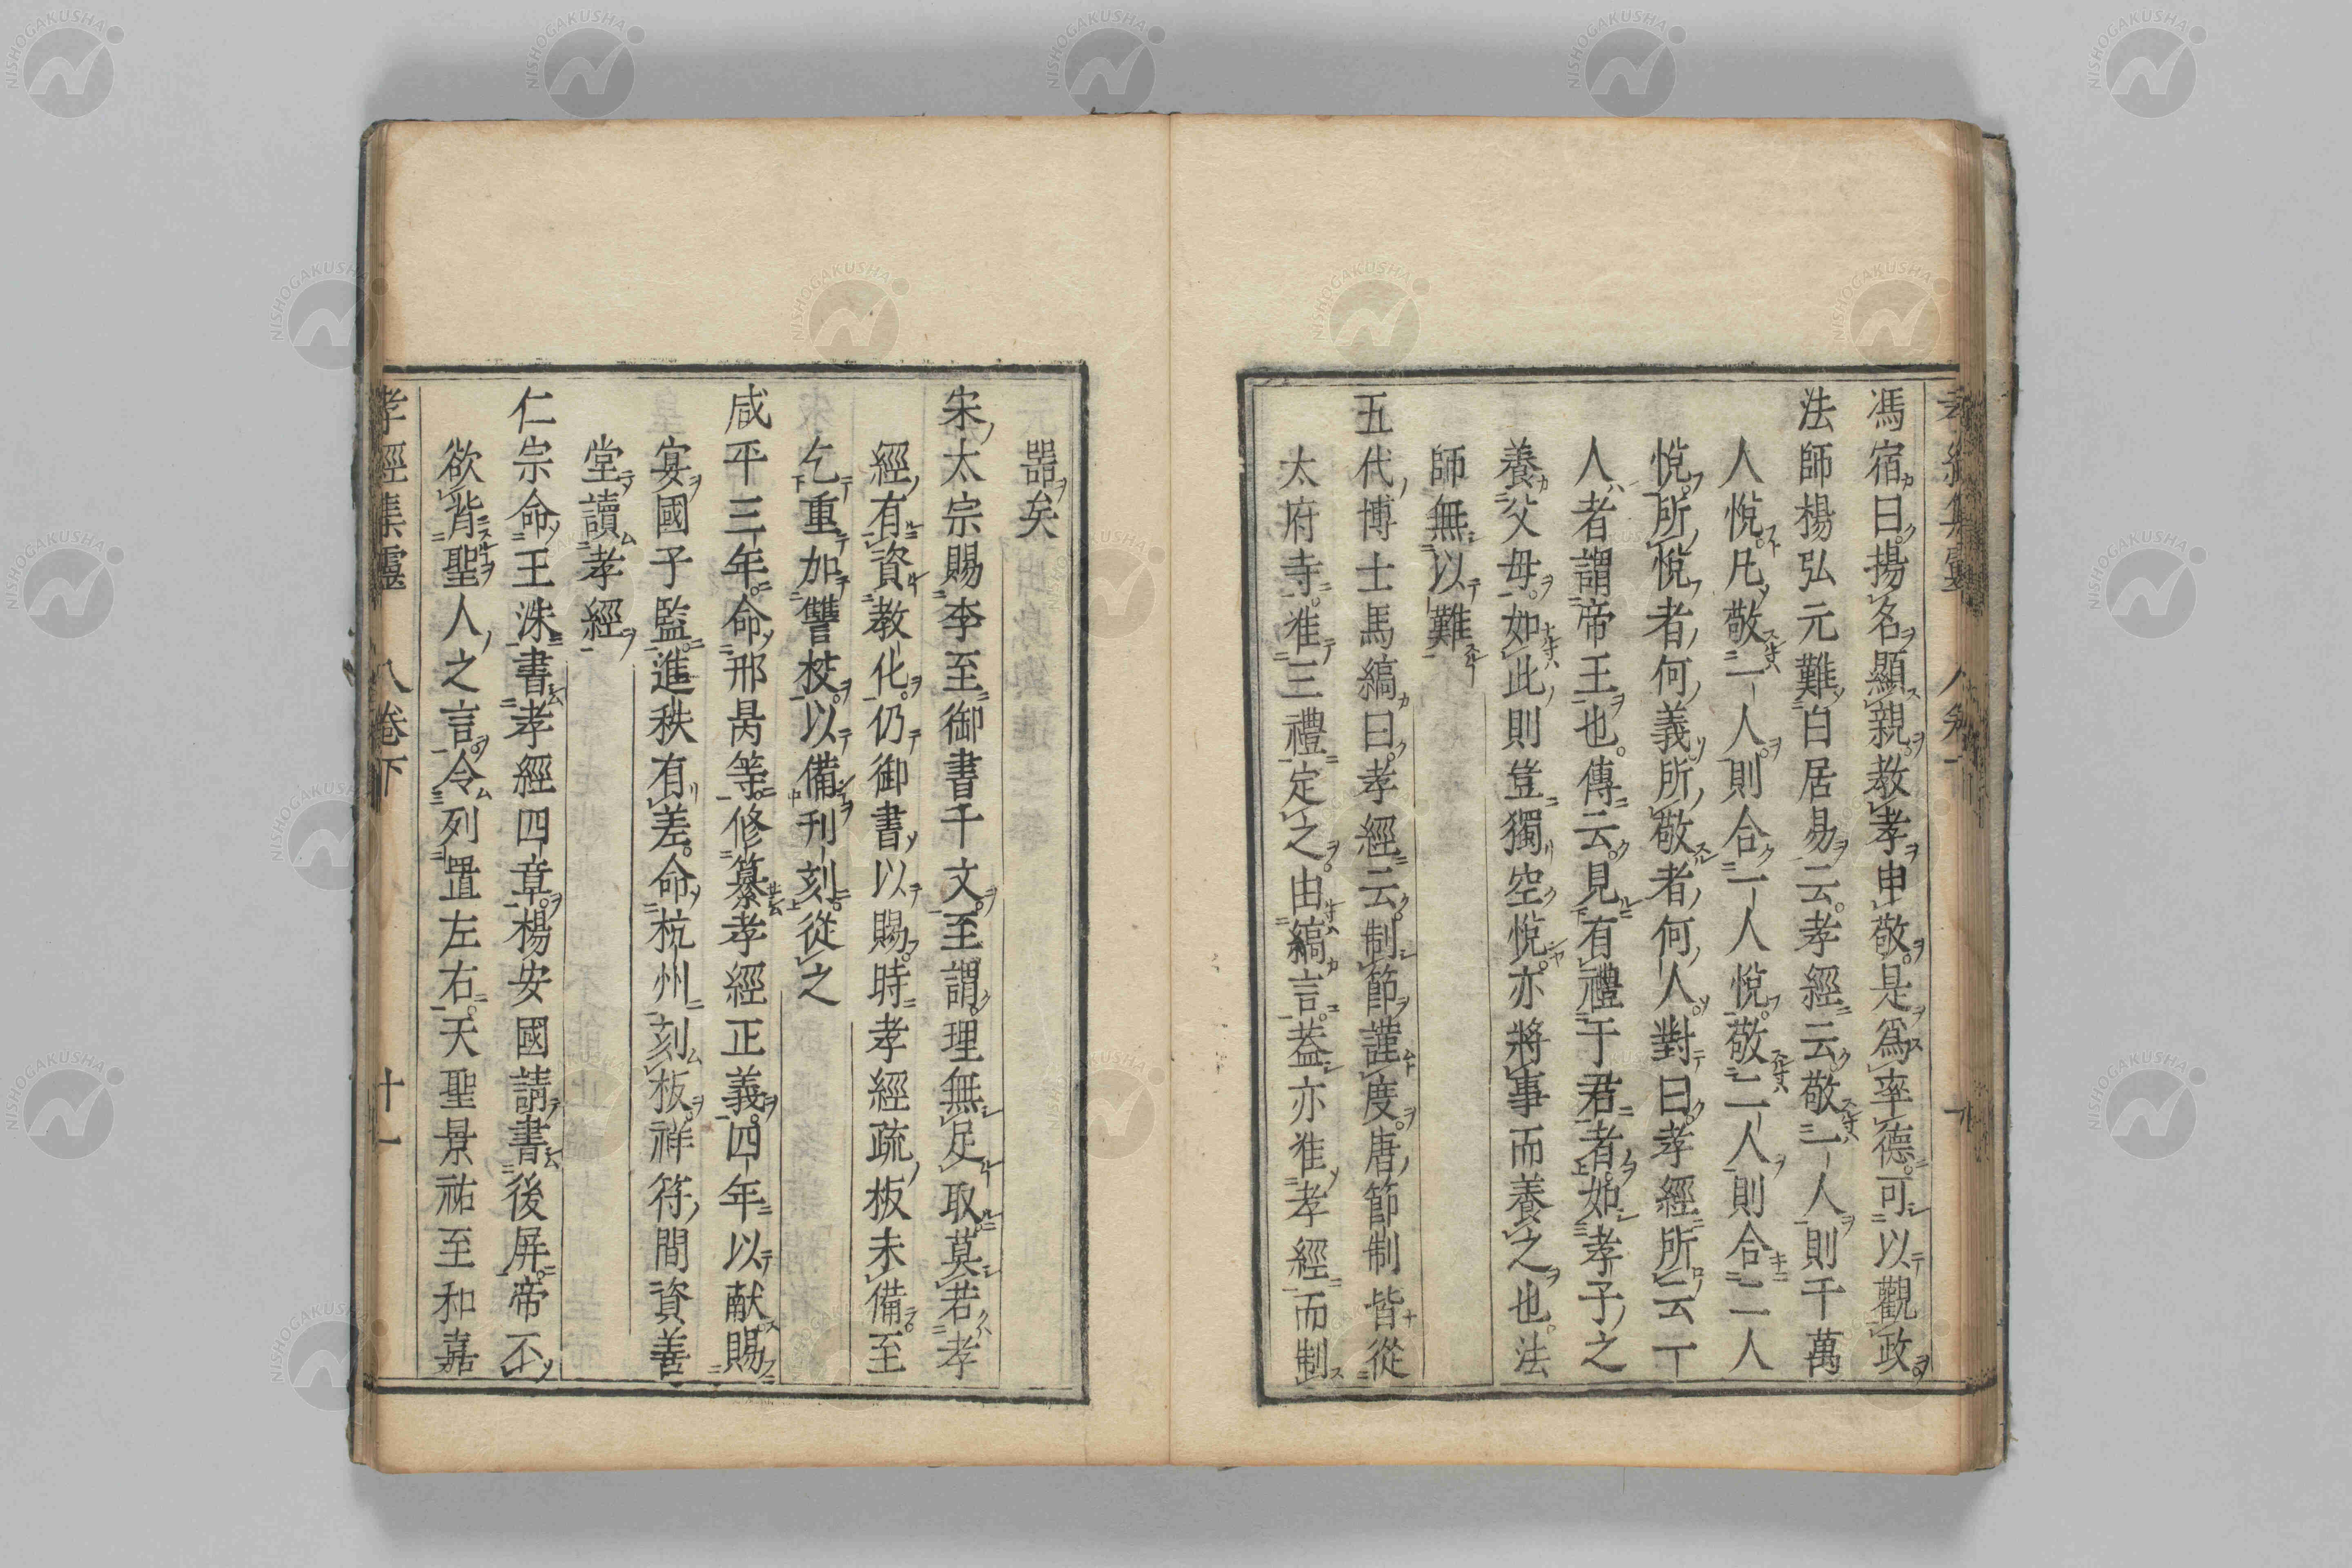 馮宿曰揚名顯親教孝申敬是爲率德可以觀政
法師楊弘元難白居易云孝經云敬一人則千萬
人悅凡敬一人則合一人悅敬二人則合二人
悅所悅者何義所敬者何人對曰孝經所云一
人者謂帝王也傳云見有禮于君者如孝子之
養父母如此則豈獨空悅亦將事而養之也法
師無以難
五代博士馬縞曰孝經云制節謹度唐節制皆從
太府寺准三禮定之由縞言蓋亦准孝經而制
器矣
宋太宗賜李至御書千文至謂理無足取莫若孝
經有資教化仍御書以賜時孝經疏板未備至
乞重加讐校以備刊刻從之
咸平三年命邢昺等修纂孝經正義四年以献賜
宴國子監進秩有差命杭州刻板祥符間資善
堂讀孝經
仁宗命王洙書孝經四章楊安國請書後屏帝不
欲背聖人之言令列置左右天聖景祐至和嘉
孝經集靈 卷下 十一
NISHOGAKUSHA